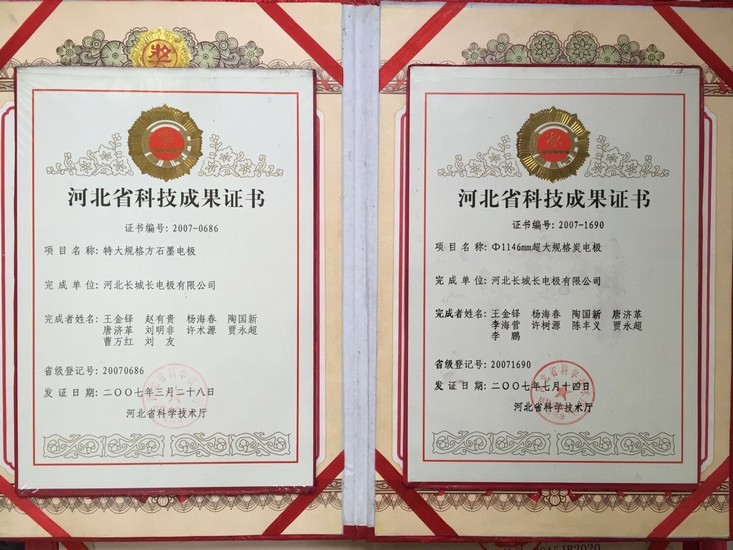 河北省科技成果证书
证书编号: 2007-0686
项目名称: 特大规格方石墨电极
完成单位: 河北长城长电极有限公司
完成者姓名: 王金铎 赵有贵 杨海春 陶国新
唐济革 刘明非 许术源 贾永超
曹万红 刘友
省级登记号: 20070686
发证日期: 二〇〇七年三月二十八日
河北省科学技术厅
河北省科技成果证书
证书编号: 2007-1690
项目名称: Φ1146mm超大规格炭电极
完成单位: 河北长城长电极有限公司
完成者姓名: 王金铎 杨海春 陶国新 唐济革
李海营 许树源 陈丰义 贾永超
李鹏
省级登记号: 20071690
发证日期: 二〇〇七年七月十四日
河北省科学技术厅